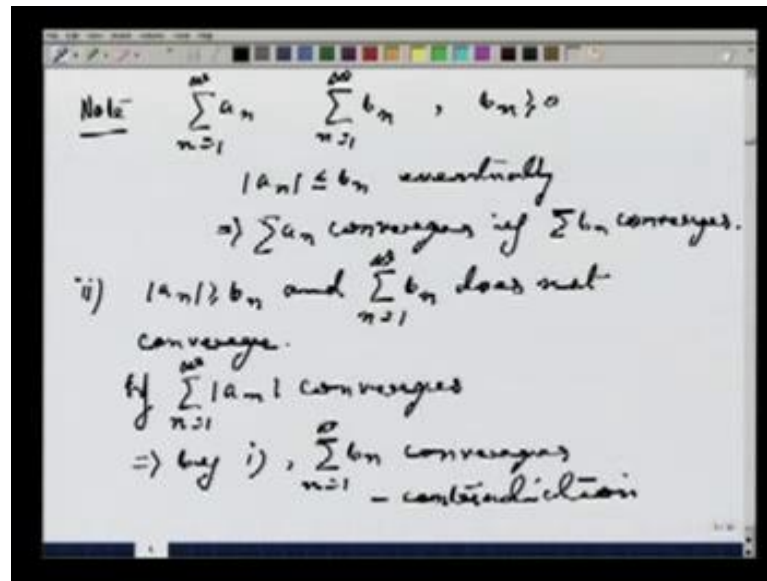 Note ∑_{n=1}^{∞} a_n ∑_{n=1}^{∞} b_n , b_n ≥ 0
|a_n| ≤ b_n eventually
⇒ ∑a_n converges if ∑b_n converges.
ii) |a_n| ≥ b_n and ∑_{n=1}^{∞} b_n does not
converge.
If ∑_{n=1}^{∞} |a_n| converges
⇒ by i), ∑_{n=1}^{∞} b_n converges
– contradiction